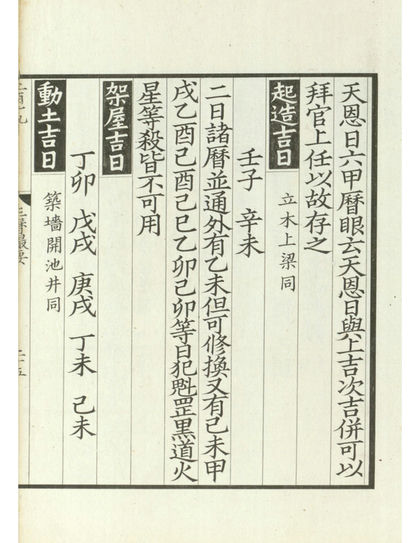 天恩日六甲曆眼云天恩日與上吉次吉併可以
拜官上任以故存之
起造吉日 立木上梁同
壬子 辛未
二日諸曆並通外有乙未但可修換又有己未甲
戌乙酉己酉己巳乙卯己卯等日犯魁罡黑道火
星等殺皆不可用
架屋吉日
丁卯 戊戌 庚戌 丁未 己未
動土吉日 築墻開池井同